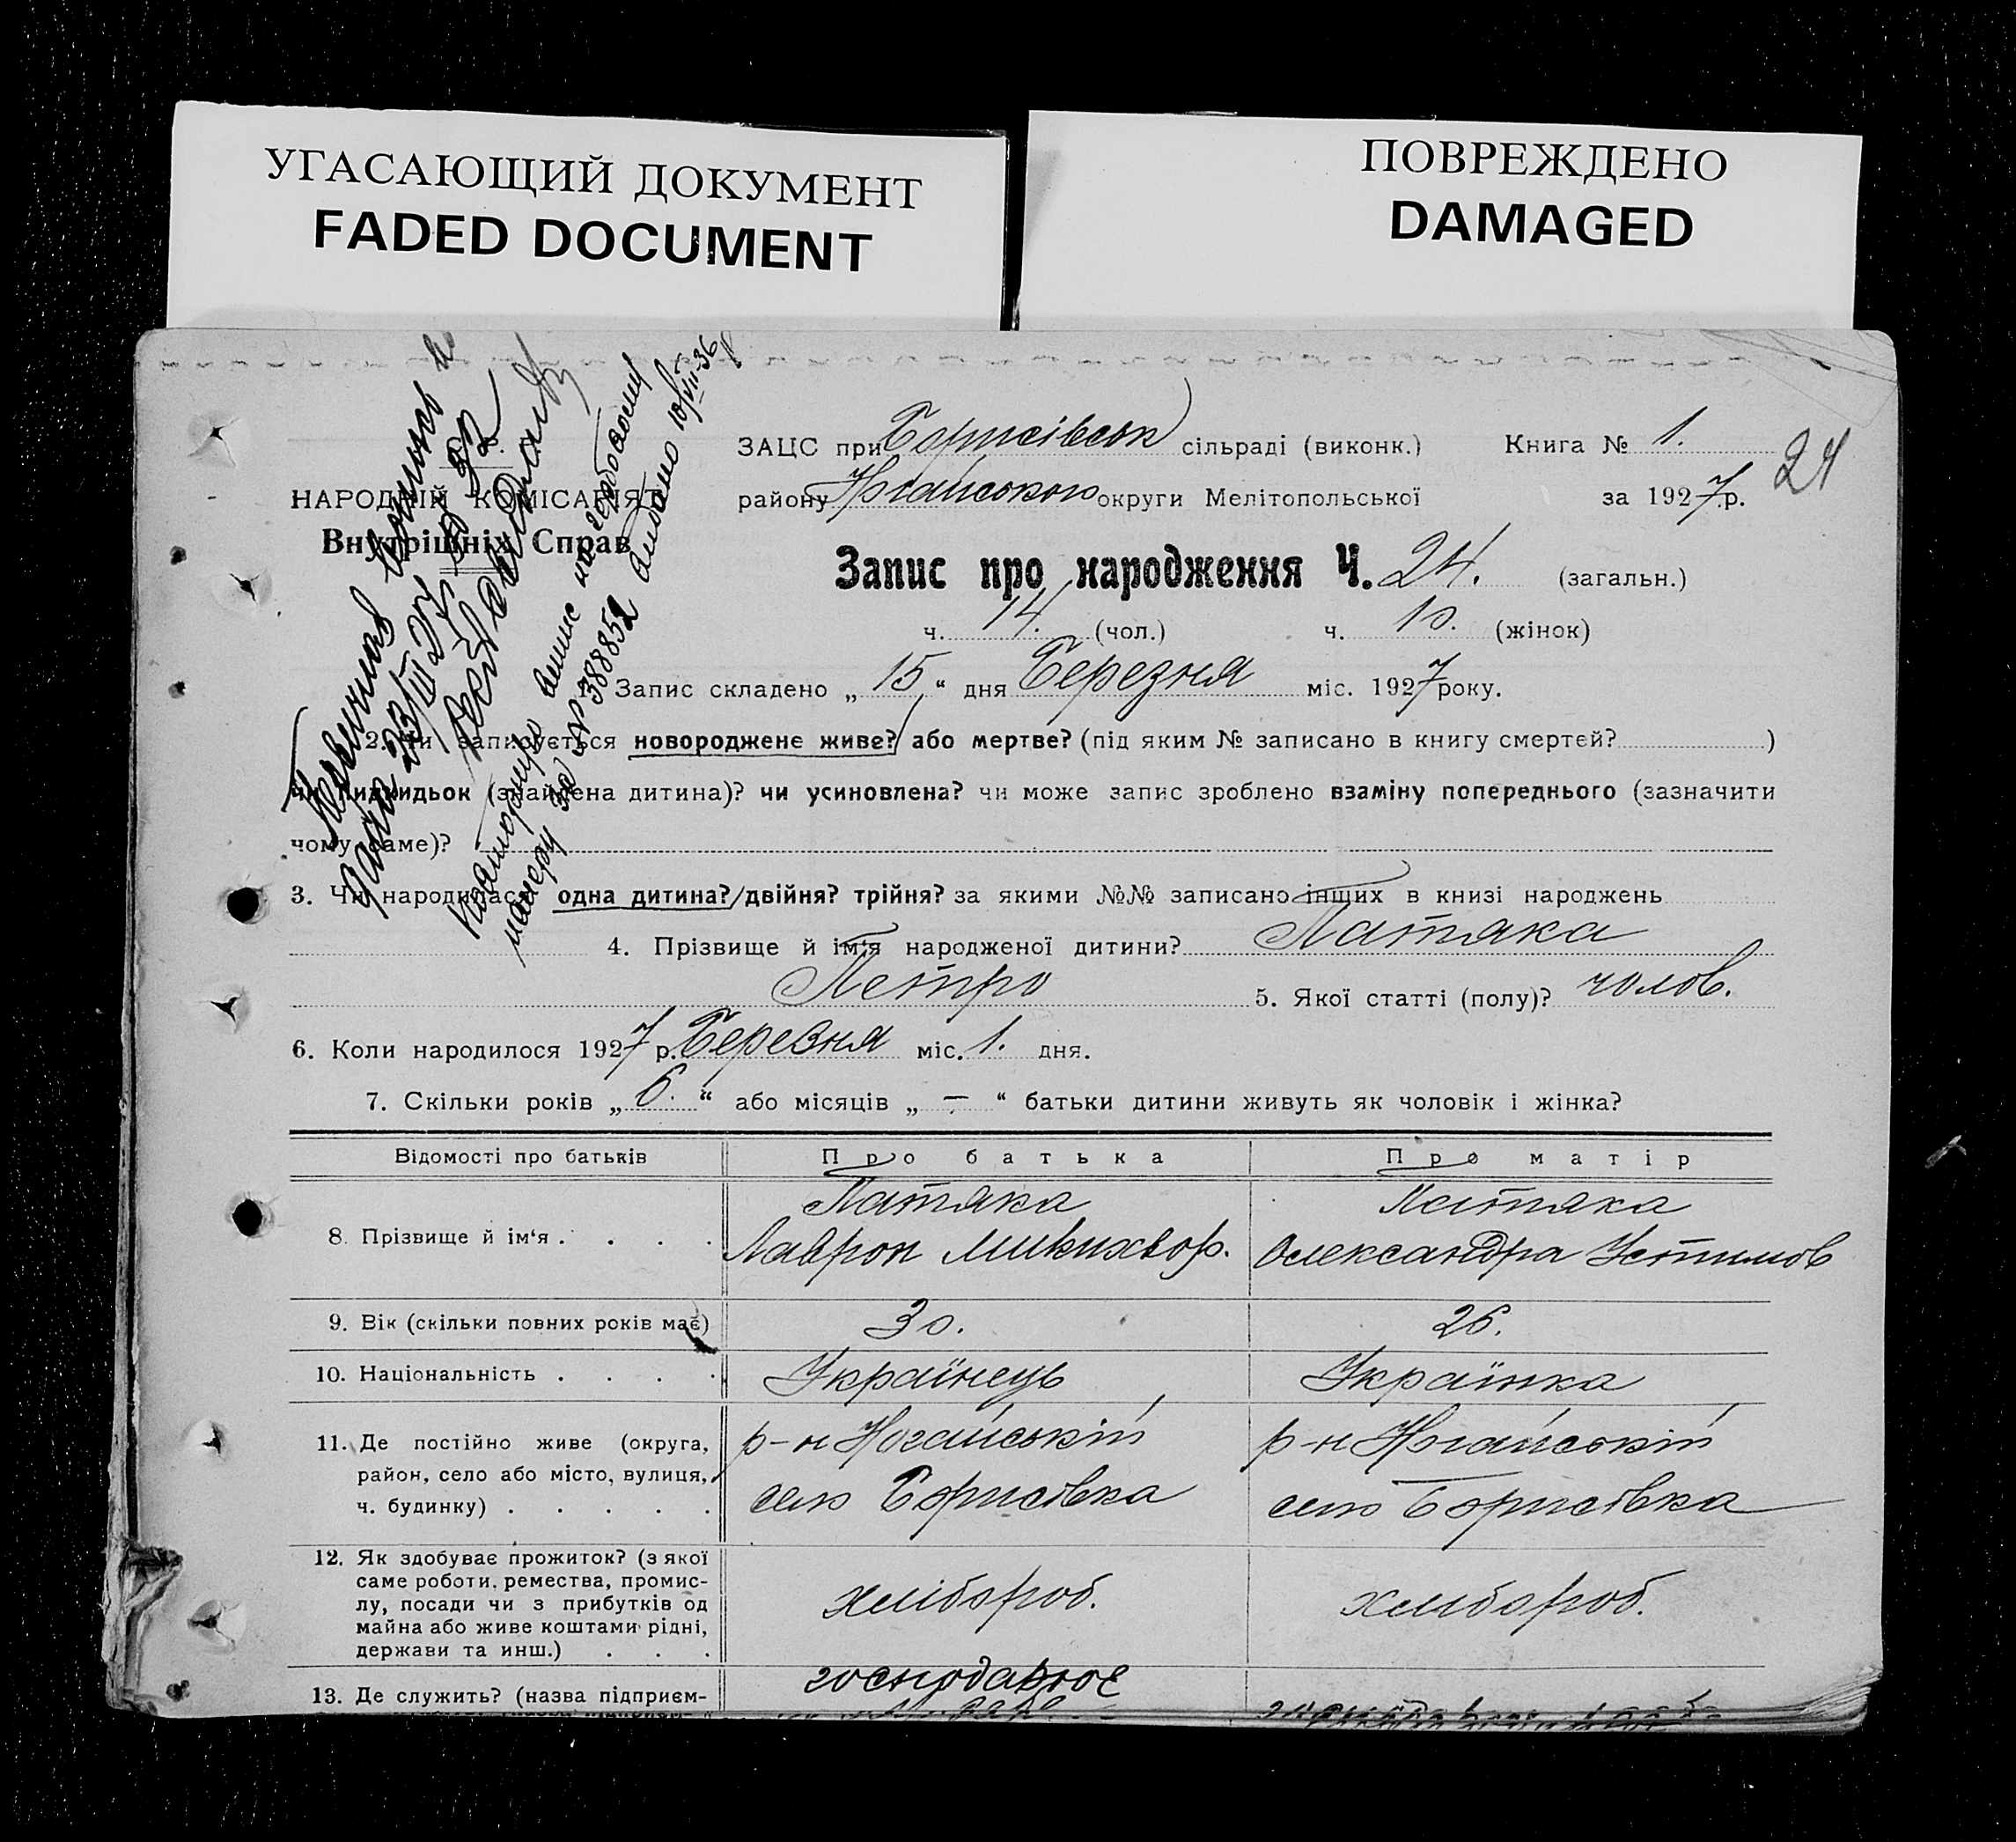 УГАСАЮЩИЙ ДОКУМЕНТ
FADED DOCUMENT
ПОВРЕЖДЕНО
DAMAGED
НАРОДНІЙ КОМІСАРІЯТ
Внутрішніх Справ
ЗАЦС при Борисівськ сільраді (виконк.) Книга № 1.
району Ногайського округи Мелітопольської за 1927 р.
24
Запис про народження Ч. 24. (загальн.)
ч. 14. (чол.) ч. 10. (жінок)
Запис складено „ 15 “ дня Березня міс. 1927 року.
2. Чи записується новороджене живе? або мертве? (під яким № записано в книгу смертей? )
чи підкидьок (знайдена дитина)? чи усиновлена? чи може запис зроблено взаміну попереднього (зазначити
чому саме)?
3. Чи народилась одна дитина? двійня? трійня? за якими №№ записано інших в книзі народжень
4. Прізвище й ім'я народженої дитини? Латяка
Петро 5. Якої статті (полу)? чолов.
6. Коли народилося 1927 р. Березня міс. 1. дня.
7. Скільки років „ 6. “ або місяців „ — “ батьки дитини живуть як чоловік і жінка?
Відомості про батьків Про батька Про матір
8. Прізвище й ім'я . . . . Латяка Латяка
Лаврон Микихвор. Олександра Устимов
9. Вік (скільки повних років має) 30. 26.
10. Національність . . . . Українець Українка
11. Де постійно живе (округа, район, село або місто, вулиця, ч. будинку) . . . . . р-н Ногайський р-н Ногайський
село Борисівка село Борисівка
12. Як здобуває прожиток? (з якої саме роботи, ремества, промислу, посади чи з прибутків од майна або живе коштами рідні, держави та инш.) . . . хлібороб. хлібороб.
13. Де служить? (назва підприєм-